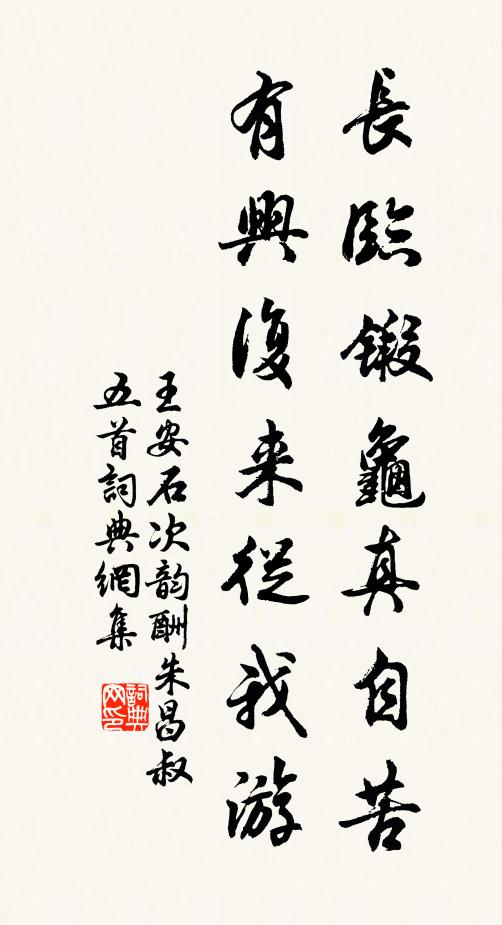 長臨鍛龜真自苦
有興復来從我游
王安石次韵酬朱昌叔
五首詞典網集
詞典网印